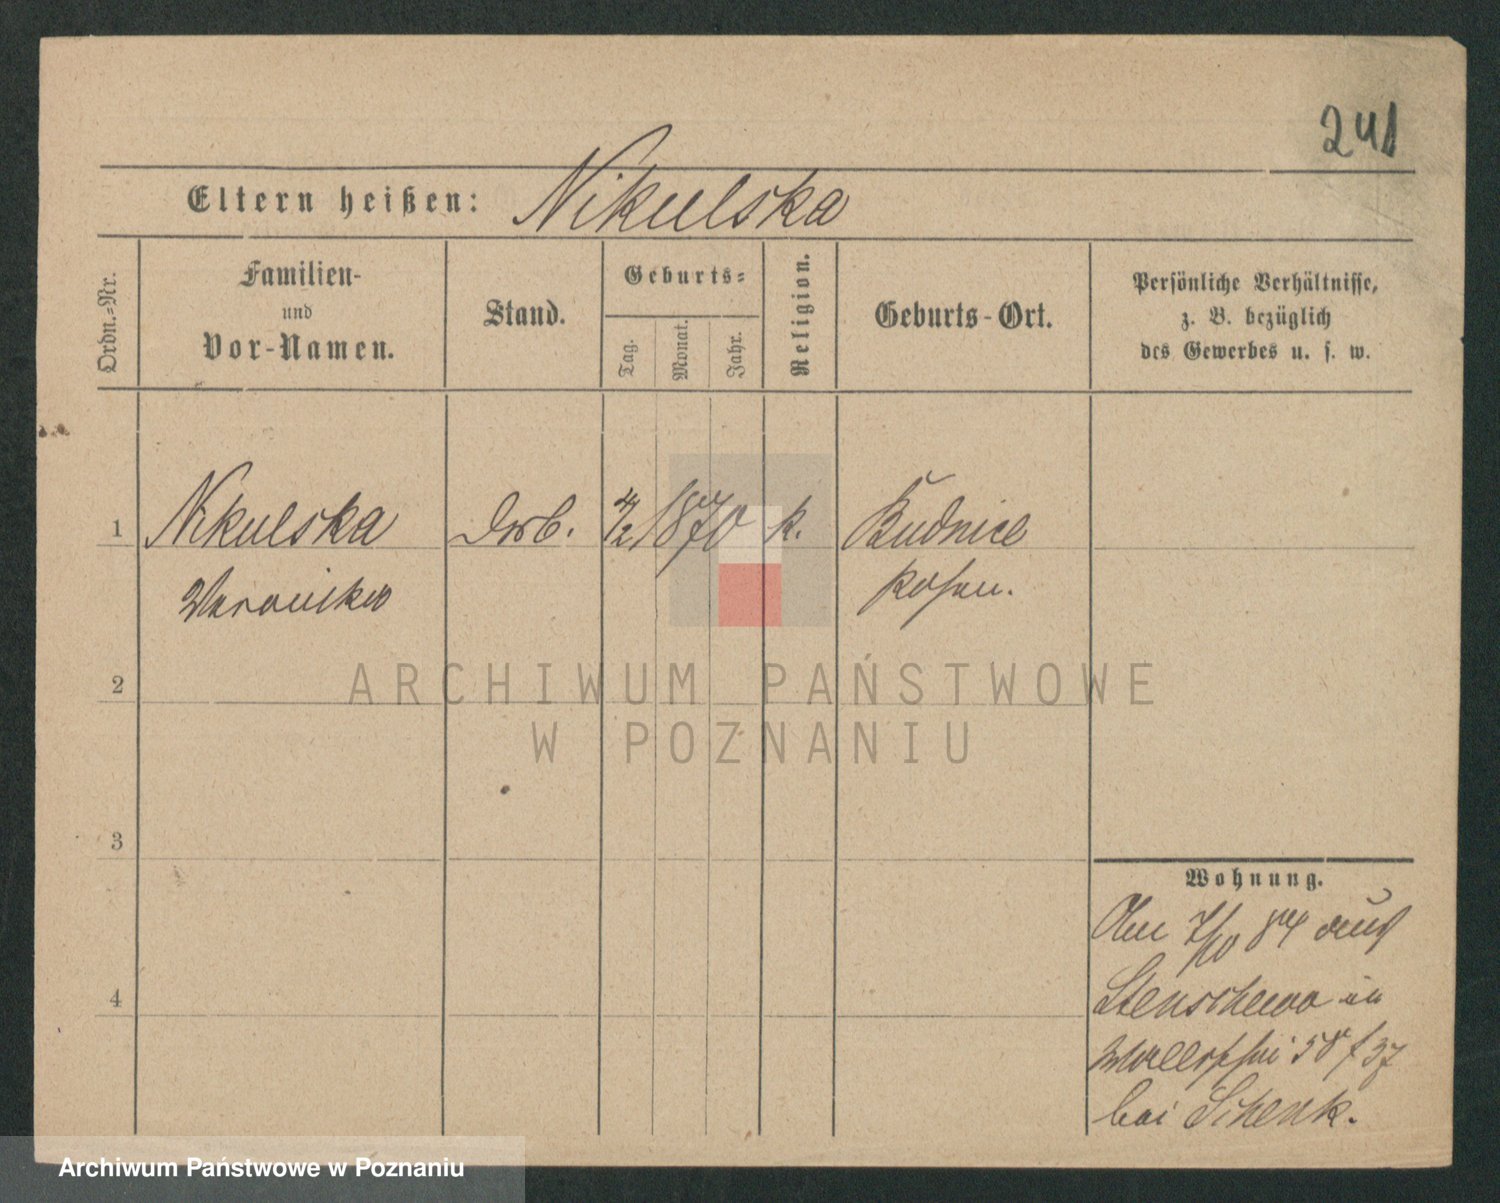 241
Eltern heißen: Nikulska
Ordn.=Nr.
Familien-
und
Vor-Namen.
Stand.
Geburts=
Tag.
Monat.
Jahr.
Religion.
Geburts-Ort.
Persönliche Verhältnisse,
z. B. bezüglich
des Gewerbes u. s. w.
1 Nikulska 4/2 1870 k. Budnice
Posen.
2
ARCHIWUM PAŃSTWOWE
W POZNANIU
3
Wohnung.
7/10 84 aus
Stenschewo in
4
bei Schenk.
Archiwum Państwowe w Poznaniu